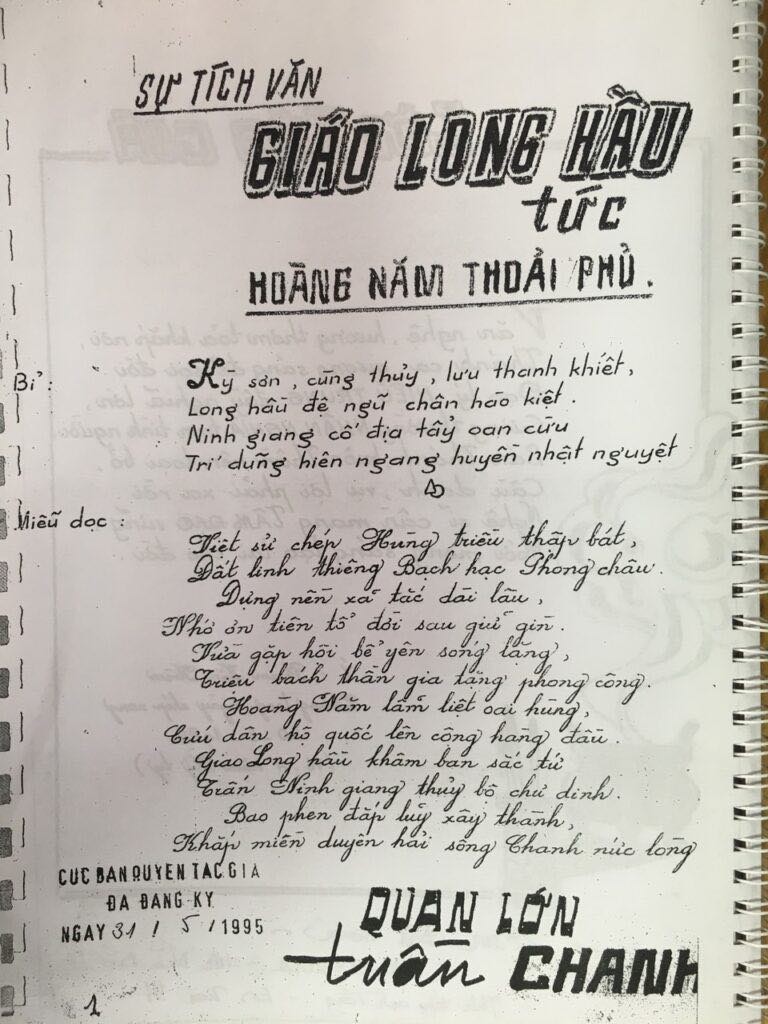 SỰ TÍCH VĂN
GIÁO LONG HẦU
tức
HOÀNG NĂM THOẢI PHỦ.
Bỉ: Kỳ sơn, cùng thủy, lưu thanh khiết,
Long hầu đệ ngũ chân hào kiệt.
Ninh giang cố địa tẩy oan cừu
Trí dũng hiên ngang huyền nhật nguyệt
Miễu dọc:
Việt sử chép Hùng triều thập bát,
Đất linh thiêng Bạch hạc Phong châu.
Dựng nền xã tắc dài lâu,
Nhớ ơn tiên tổ đời sau giữ gìn.
Vừa gặp hồi bể yên sóng lặng,
Triệu bách thần gia tăng phong công.
Hoàng Năm lẫm liệt oai hùng,
Cứu dân hộ quốc lên công hàng đầu.
Giao Long hầu khâm ban sắc tứ
Trấn Ninh giang thủy bộ chư dinh.
Bao phen đắp lũy xây thành,
Khắp miền duyên hải sông Chanh nức lòng
CUC BAN QUYEN TAC GIA
ĐA ĐANG KY
NGAY 31 / 5 / 1995
QUAN LỚN
tuần CHANH
1